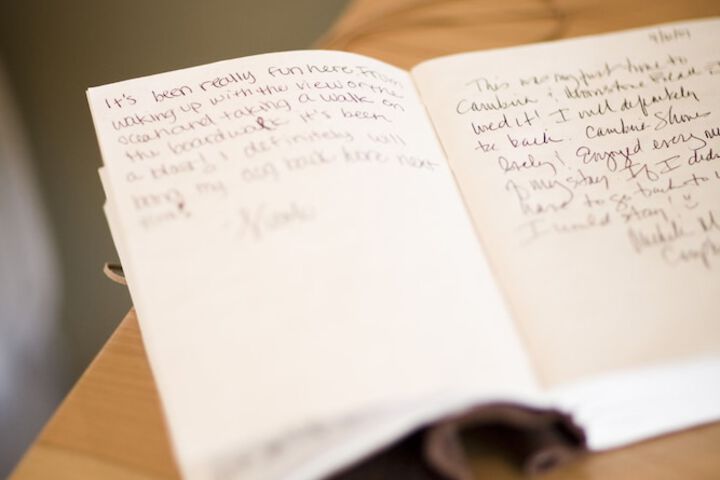 It's been really fun here. From
waking up with the view or the
ocean and taking a walk on
the boardwalk it's been
a blast! I definitely will
bring my dog back here next
time!
Nicole
9/10/
This was my first time to
Cambria & Moonstone Beach I
loved it! I will definitely
be back. Cambria Shores
lovely! Enjoyed every
of my stay. If I didn
have to go back to
I would stay!